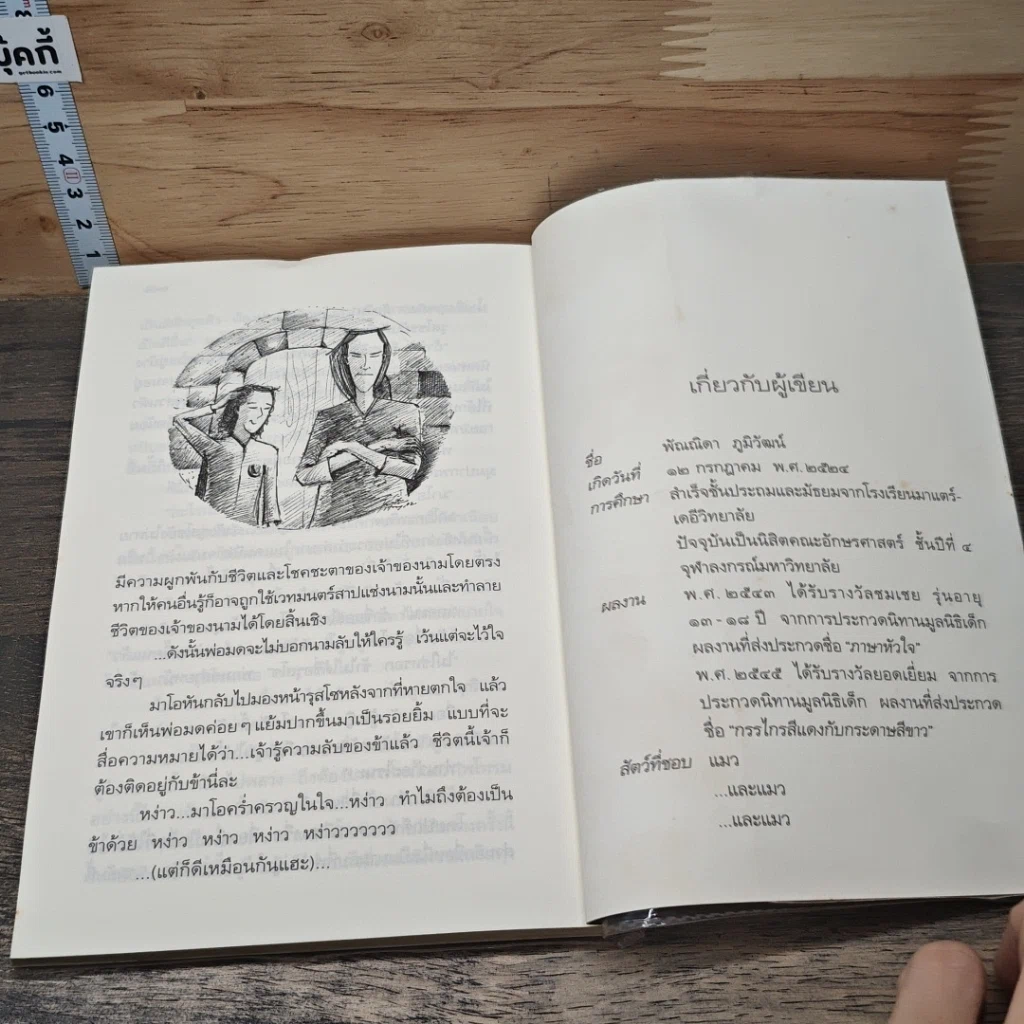 บุ๊คกี้
getbookie.com
6
5
4
3
2
1
มีความผูกพันกับชีวิตและโชคชะตาของเจ้าของนามโดยตรง
หากให้คนอื่นรู้ก็อาจถูกใช้เวทมนตร์สาปแช่งนามนั้นและทำลาย
ชีวิตของเจ้าของนามได้โดยสิ้นเชิง
...ดังนั้นพ่อมดจะไม่บอกนามลับให้ใครรู้ เว้นแต่จะไว้ใจ
จริงๆ
มาโอหันกลับไปมองหน้ารุสโซหลังจากที่หายตกใจ แล้ว
เขาก็เห็นพ่อมดค่อยๆ แย้มปากขึ้นมาเป็นรอยยิ้ม แบบที่จะ
สื่อความหมายได้ว่า...เจ้ารู้ความลับของข้าแล้ว ชีวิตนี้เจ้าก็
ต้องติดอยู่กับข้านี่ละ
หง่าว...มาโอคร่ำครวญในใจ...หง่าว ทำไมถึงต้องเป็น
ข้าด้วย หง่าว หง่าว หง่าว หง่าวววววว
...(แต่ก็ดีเหมือนกันแฮะ)...
เกี่ยวกับผู้เขียน
ชื่อ พัณณิดา ภูมิวัฒน์
เกิดวันที่ ๑๒ กรกฎาคม พ.ศ. ๒๕๒๔
การศึกษา สำเร็จชั้นประถมและมัธยมจากโรงเรียนมาแตร์-
เดอีวิทยาลัย
ปัจจุบันเป็นนิสิตคณะอักษรศาสตร์ ชั้นปีที่ ๔
จุฬาลงกรณ์มหาวิทยาลัย
ผลงาน พ.ศ. ๒๕๔๓ ได้รับรางวัลชมเชย รุ่นอายุ
๑๓ - ๑๘ ปี จากการประกวดนิทานมูลนิธิเด็ก
ผลงานที่ส่งประกวดชื่อ “ภาษาหัวใจ”
พ.ศ. ๒๕๔๕ ได้รับรางวัลยอดเยี่ยม จากการ
ประกวดนิทานมูลนิธิเด็ก ผลงานที่ส่งประกวด
ชื่อ “กรรไกรสีแดงกับกระดาษสีขาว”
สัตว์ที่ชอบ แมว
...และแมว
...และแมว